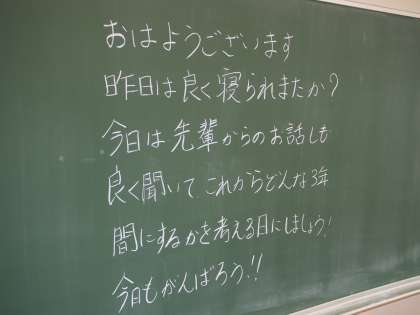 おはようございます
昨日は良く寝られまたか?
今日は先輩からのお話しも
良く聞いて、これからどんな3年
間にするかを考える日にしましょう!
今日もがんばろう!!